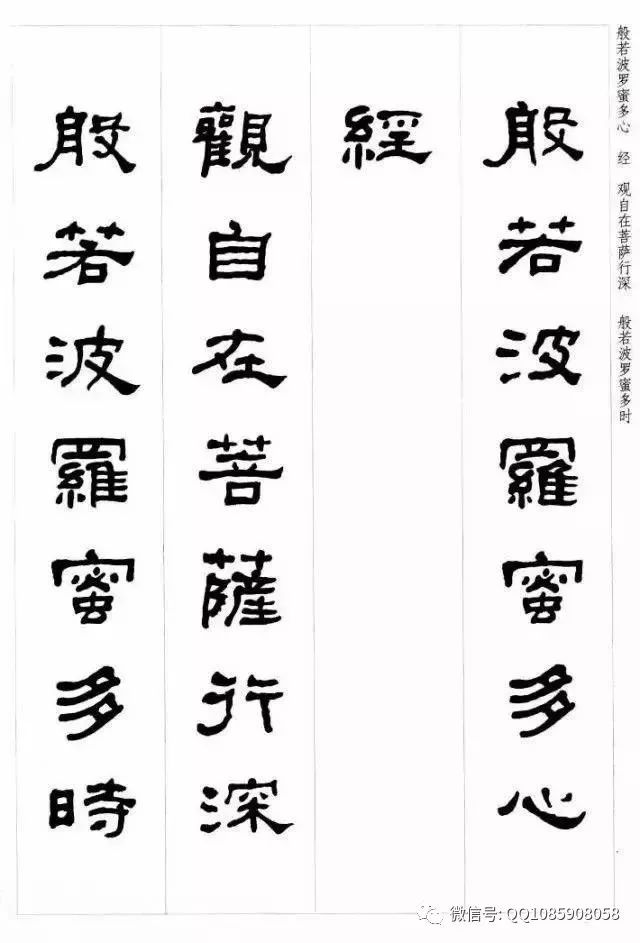 般若波罗蜜多心　经　观自在菩萨行深　般若波罗蜜多时
般若波羅蜜多心
經
觀自在菩薩行深
般若波羅蜜多時
微信号: QQ1085908058